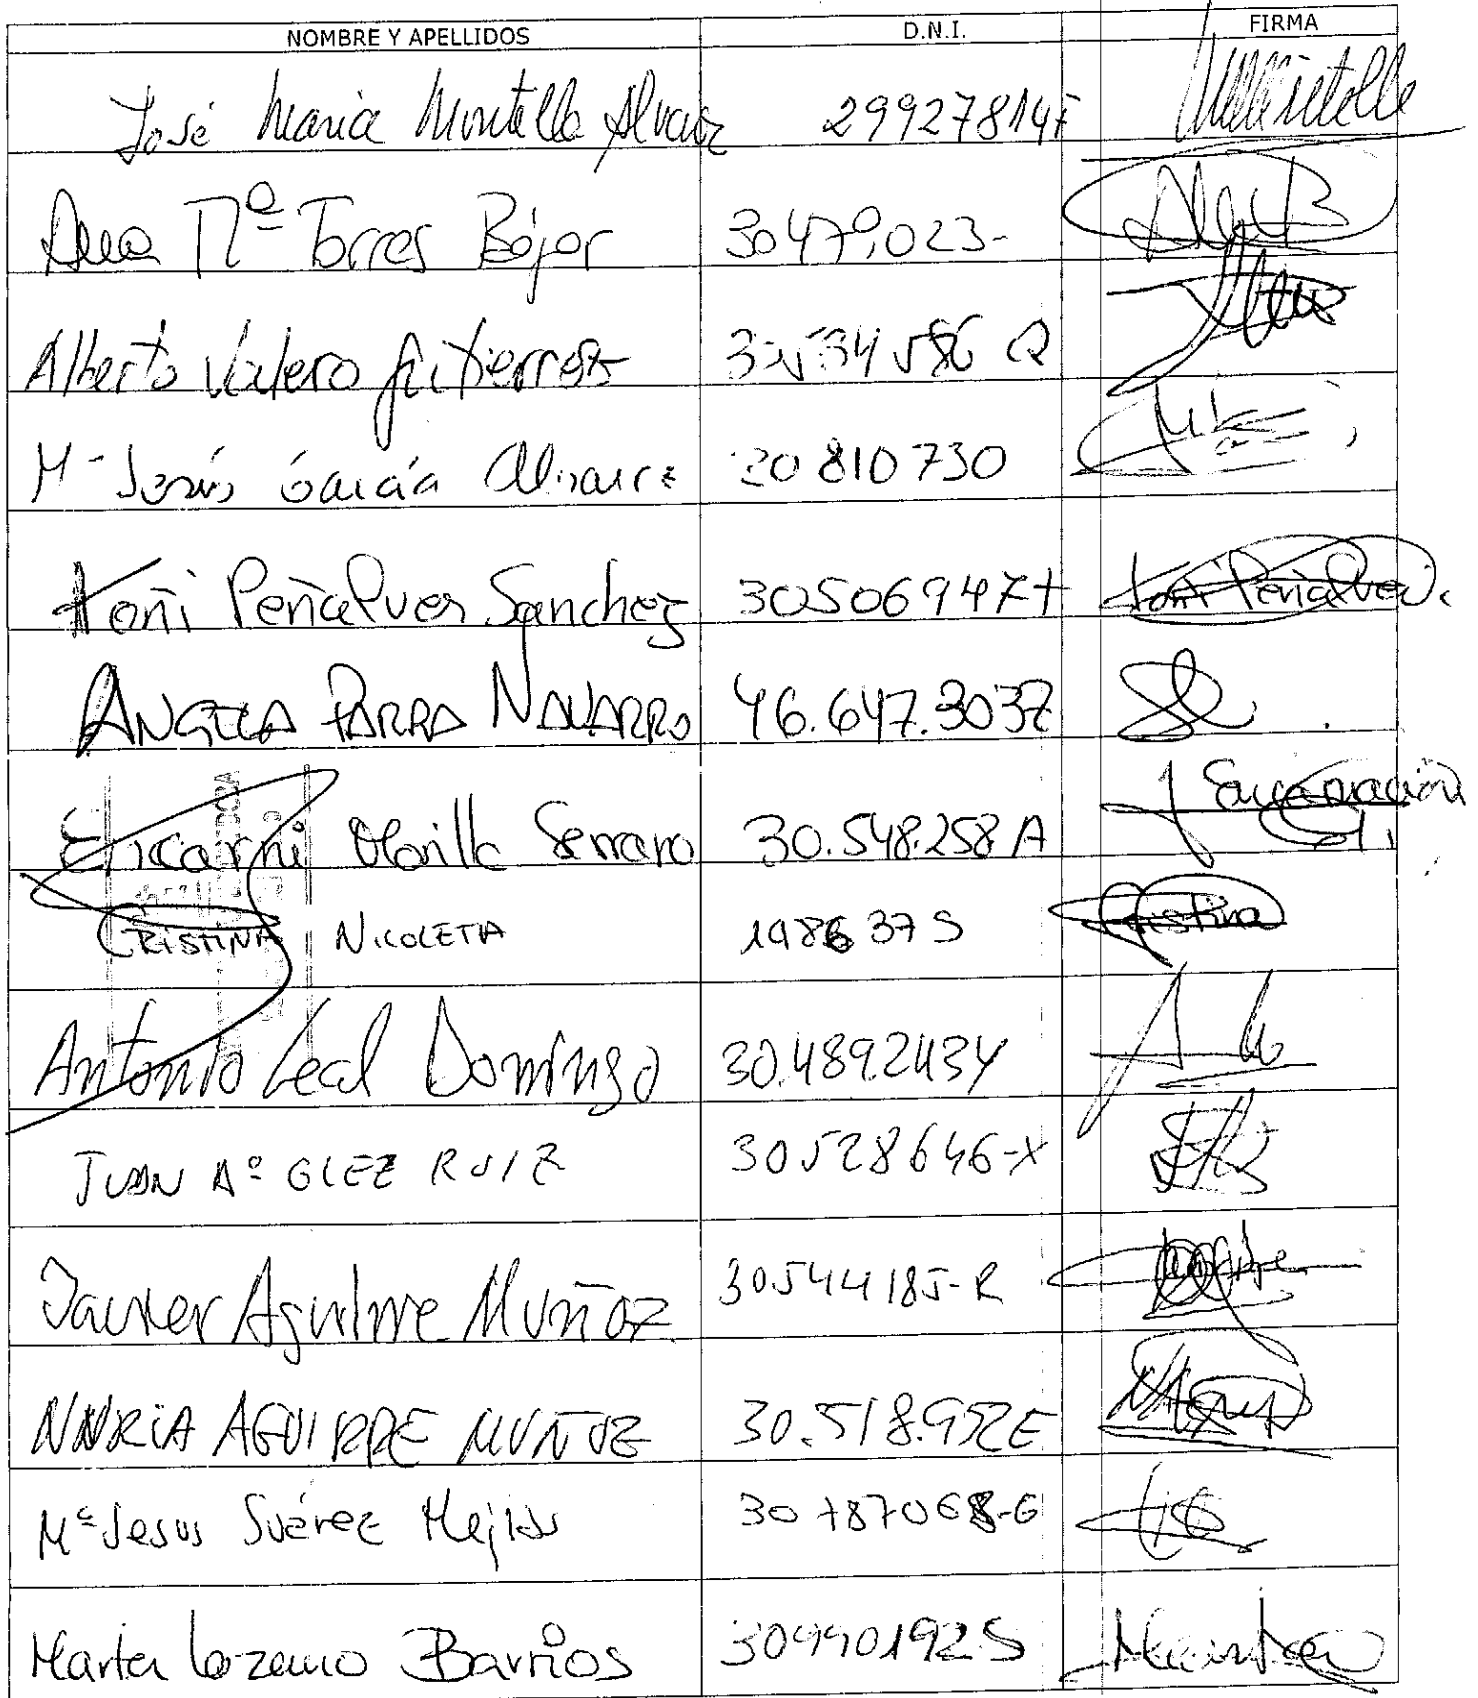 NOMBRE Y APELLIDOS D.N.I. FIRMA
José Maria Montilla Alvarez 29927814F
Ana Mª Torres Béjar 30479023-
Alberto Valero Gutierrez Q
Mª Jesús García 20 810 730
Toñi Peñalver Sanchez 30506947 Toñi Peñalver
ANGELA PARRA NAVARRO 46.647.303Z
Encarni Serrano 30.548.258 A Encarnación
CRISTINA NICOLETA 198637 S Cristina
Antonio Leal Domingo 30.489.243Y
JUAN Aº GLEZ RUIZ 30528646-X
Javier Aguirre Muñoz 30544185-R
NURIA AGUIRRE MUÑOZ 30.518.952E
Mª Jesus Suárez Mejias 30787068-G
Marta Lozano Barrios 30990192S Marta